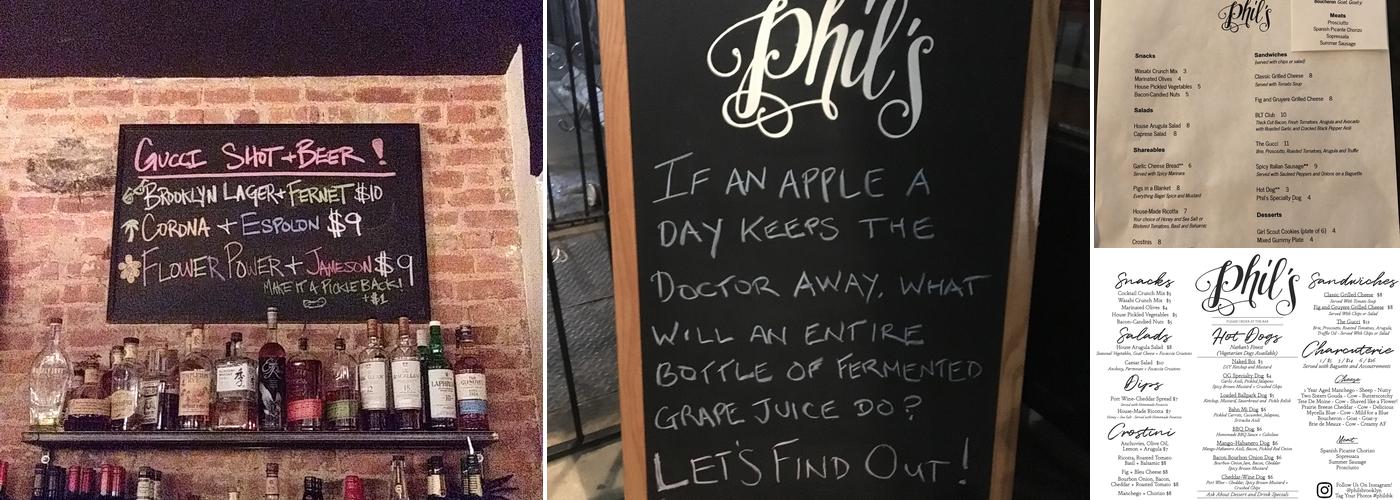 GUCCI SHOT + BEER!
BROOKLYN LAGER + FERNET $10
CORONA + ESPOLON $9
FLOWER POWER + JAMESON $9
MAKE IT A PICKLEBACK!
+$1
LAPHROAIG
Phil's
IF AN APPLE A
DAY KEEPS THE
DOCTOR AWAY, WHAT
WILL AN ENTIRE
BOTTLE OF FERMENTED
GRAPE JUICE DO?
LET'S FIND OUT!
Phil's
Boucheron Goat, Goat-y
Meats
Prosciutto
Spanish Picante Chorizo
Sopressata
Summer Sausage
Snacks
Wasabi Crunch Mix 3
Marinated Olives 4
House Pickled Vegetables 5
Bacon-Candied Nuts 5
Salads
House Arugula Salad 8
Caprese Salad 8
Shareables
Garlic Cheese Bread** 6
Served with Spicy Marinara
Pigs in a Blanket 8
Everything Bagel Spice and Mustard
House-Made Ricotta 7
Your choice of Honey and Sea Salt or
Blistered Tomatoes, Basil and Balsamic
Crostinis 8
Sandwiches
(served with chips or salad)
Classic Grilled Cheese 8
Served with Tomato Soup
Fig and Gruyere Grilled Cheese 8
BLT Club 10
Thick Cut Bacon, Fresh Tomatoes, Arugula and Avocado
with Roasted Garlic and Cracked Black Pepper Aioli
The Gucci 11
Brie, Prosciutto, Roasted Tomatoes, Arugula and Truffle
Spicy Italian Sausage** 9
Served with Sauteed Peppers and Onions on a Baguette
Hot Dog** 3
Phil's Specialty Dog 4
Desserts
Girl Scout Cookies (plate of 6) 4
Mixed Gummy Plate 4
Snacks
Cocktail Crunch Mix $3
Wasabi Crunch $3
Marinated Olives $4
House Pickled Vegetables $5
Bacon-Candied Nuts $5
Salads
House Arugula Salad $8
Seasonal Vegetables, Goat Cheese + Focaccia Croutons
Caesar Salad $10
Anchovy, Parmesan + Focaccia Croutons
Dips
Port Wine-Cheddar Spread $7
Served with Homemade Focaccia
House-Made Ricotta $7
Crostini
Anchovies, Olive Oil,
Lemon + Arugula $7
Ricotta, Roasted Tomato
Basil + Balsamic $8
Fig + Bleu Cheese $8
Bacon, Onion,
Cheddar + Roasted Tomato $8
Manchego + Chorizo $8
Phil's
PLEASE ORDER AT THE BAR
Hot Dogs
Nathan's Finest
(Vegetarian Dogs Available)
Naked Boi $3
DIY Ketchup and Mustard
OG Specialty Dog $4
Garlic Aioli, Pickled Jalapenos
Spicy Brown Mustard + Crushed Chips
Loaded Ballpark Dog $5
Ketchup, Mustard, Sauerkraut and Pickle Relish
Bahn Mi Dog $6
Pickled Carrots, Cucumber, Jalapeno,
Sriracha Aioli
BBQ Dog $6
Homemade BBQ Sauce + Coleslaw
Mango-Habanero Dog $6
Mango-Habanero Aioli, Bacon, Pickled Red Onion
Bacon Bourbon Onion Dog $6
Bourbon-Onion Jam, Bacon, Cheddar
Spicy Brown Mustard
Cheddar-Wine Dog $6
Port Wine - Cheddar, Spicy Brown Mustard +
Crushed Chips
Ask About Dessert and Drink Specials
Sandwiches
Classic Grilled Cheese $8
Served With Tomato Soup
Fig and Gruyere Grilled Cheese $8
Served With Chips or Salad
The Gucci $12
Brie, Prosciutto, Roasted Tomatoes, Arugula,
Truffle Oil - Served With Chips or Salad
Charcuterie
Served with Baguette and Accoutrements
Cheese
1 Year Aged Manchego - Sheep - Nutty
Two Sisters Gouda - Cow - Butterscotchy
Tete De Moine - Cow - Shaved like a Flower!
Prairie Breeze Cheddar - Cow - Delicious
Mycella Blue - Cow - Mild for a Blue
Boucheron - Goat - Goat-y
Brie de Meaux - Cow - Creamy AF
Meat
Spanish Picante Chorizo
Sopressata
Summer Sausage
Prosciutto
Follow Us On Instagram!
@philsbrooklyn
Tag Your Photos